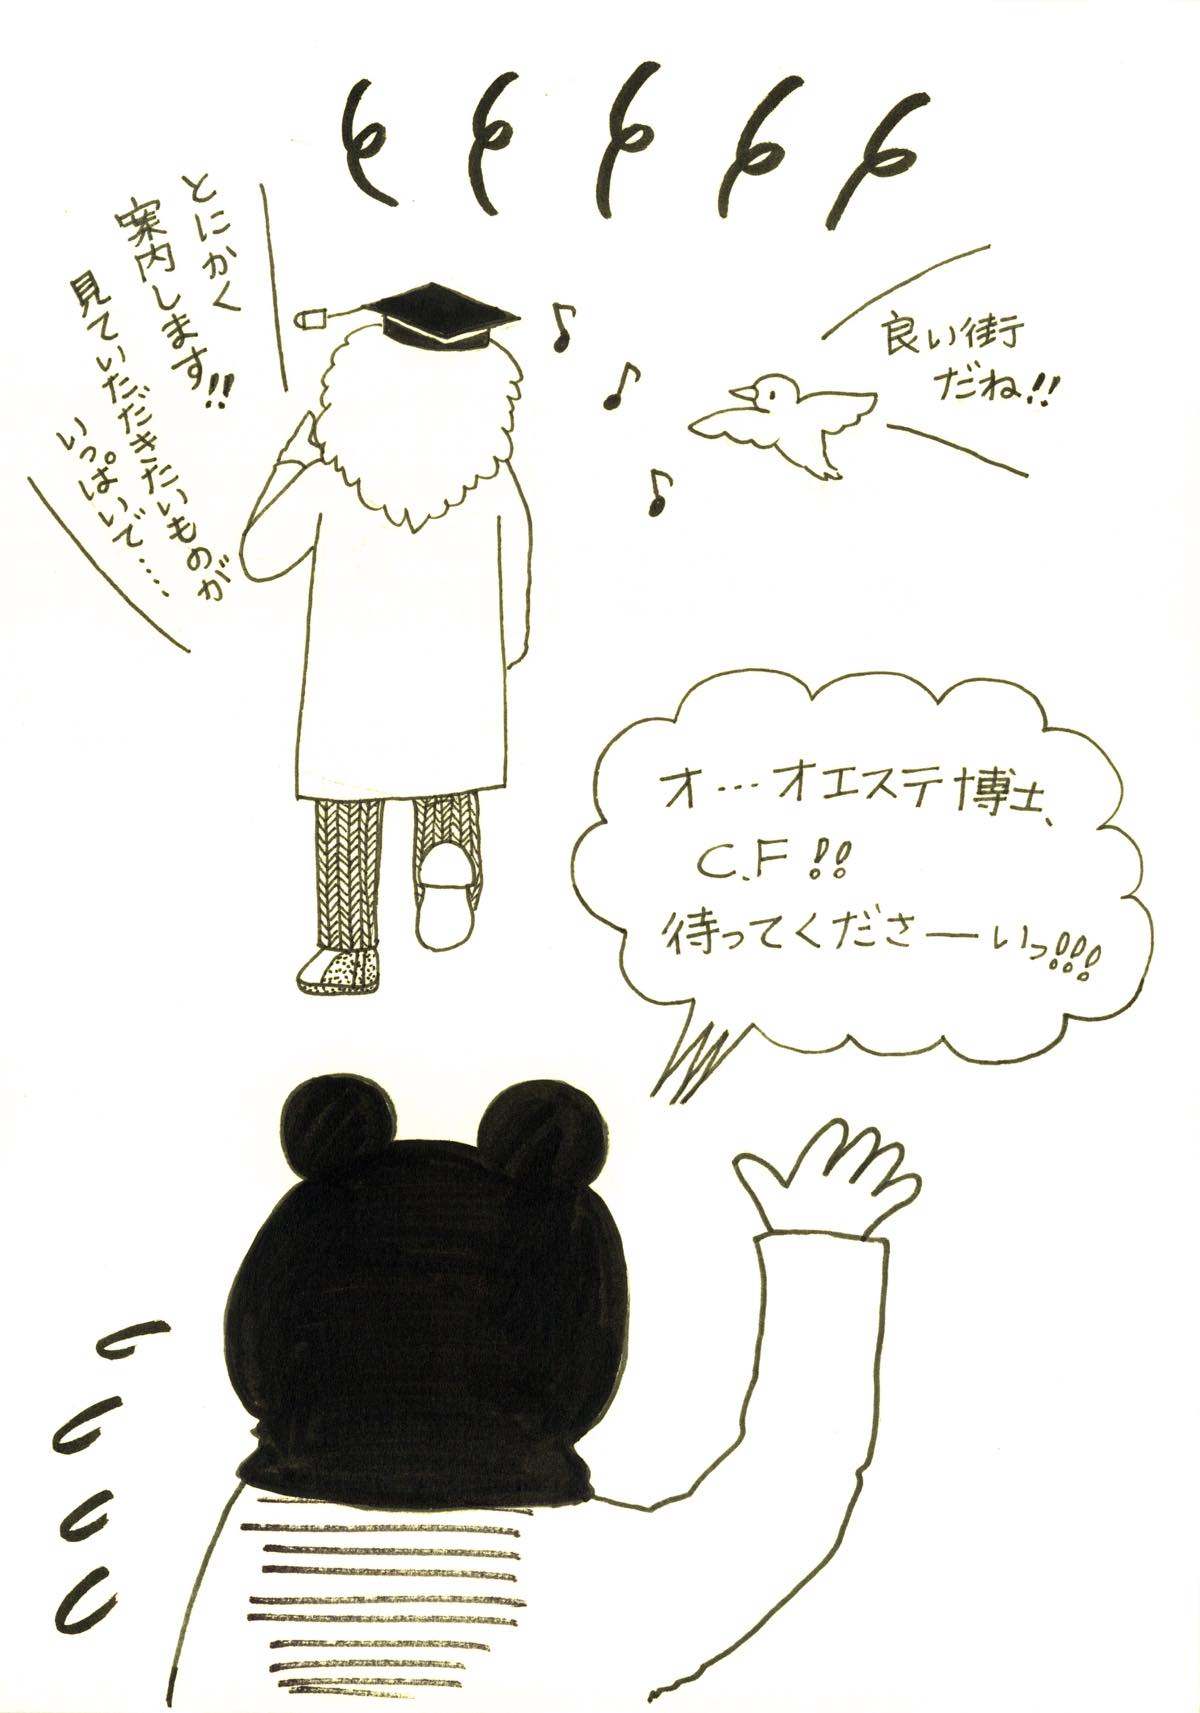 とにかく
案内します!!
見ていただきたいものが
いっぱいで....
良い街
だね!!
オ…オエステ博士、
C.F!!
待ってくださーいっ!!!